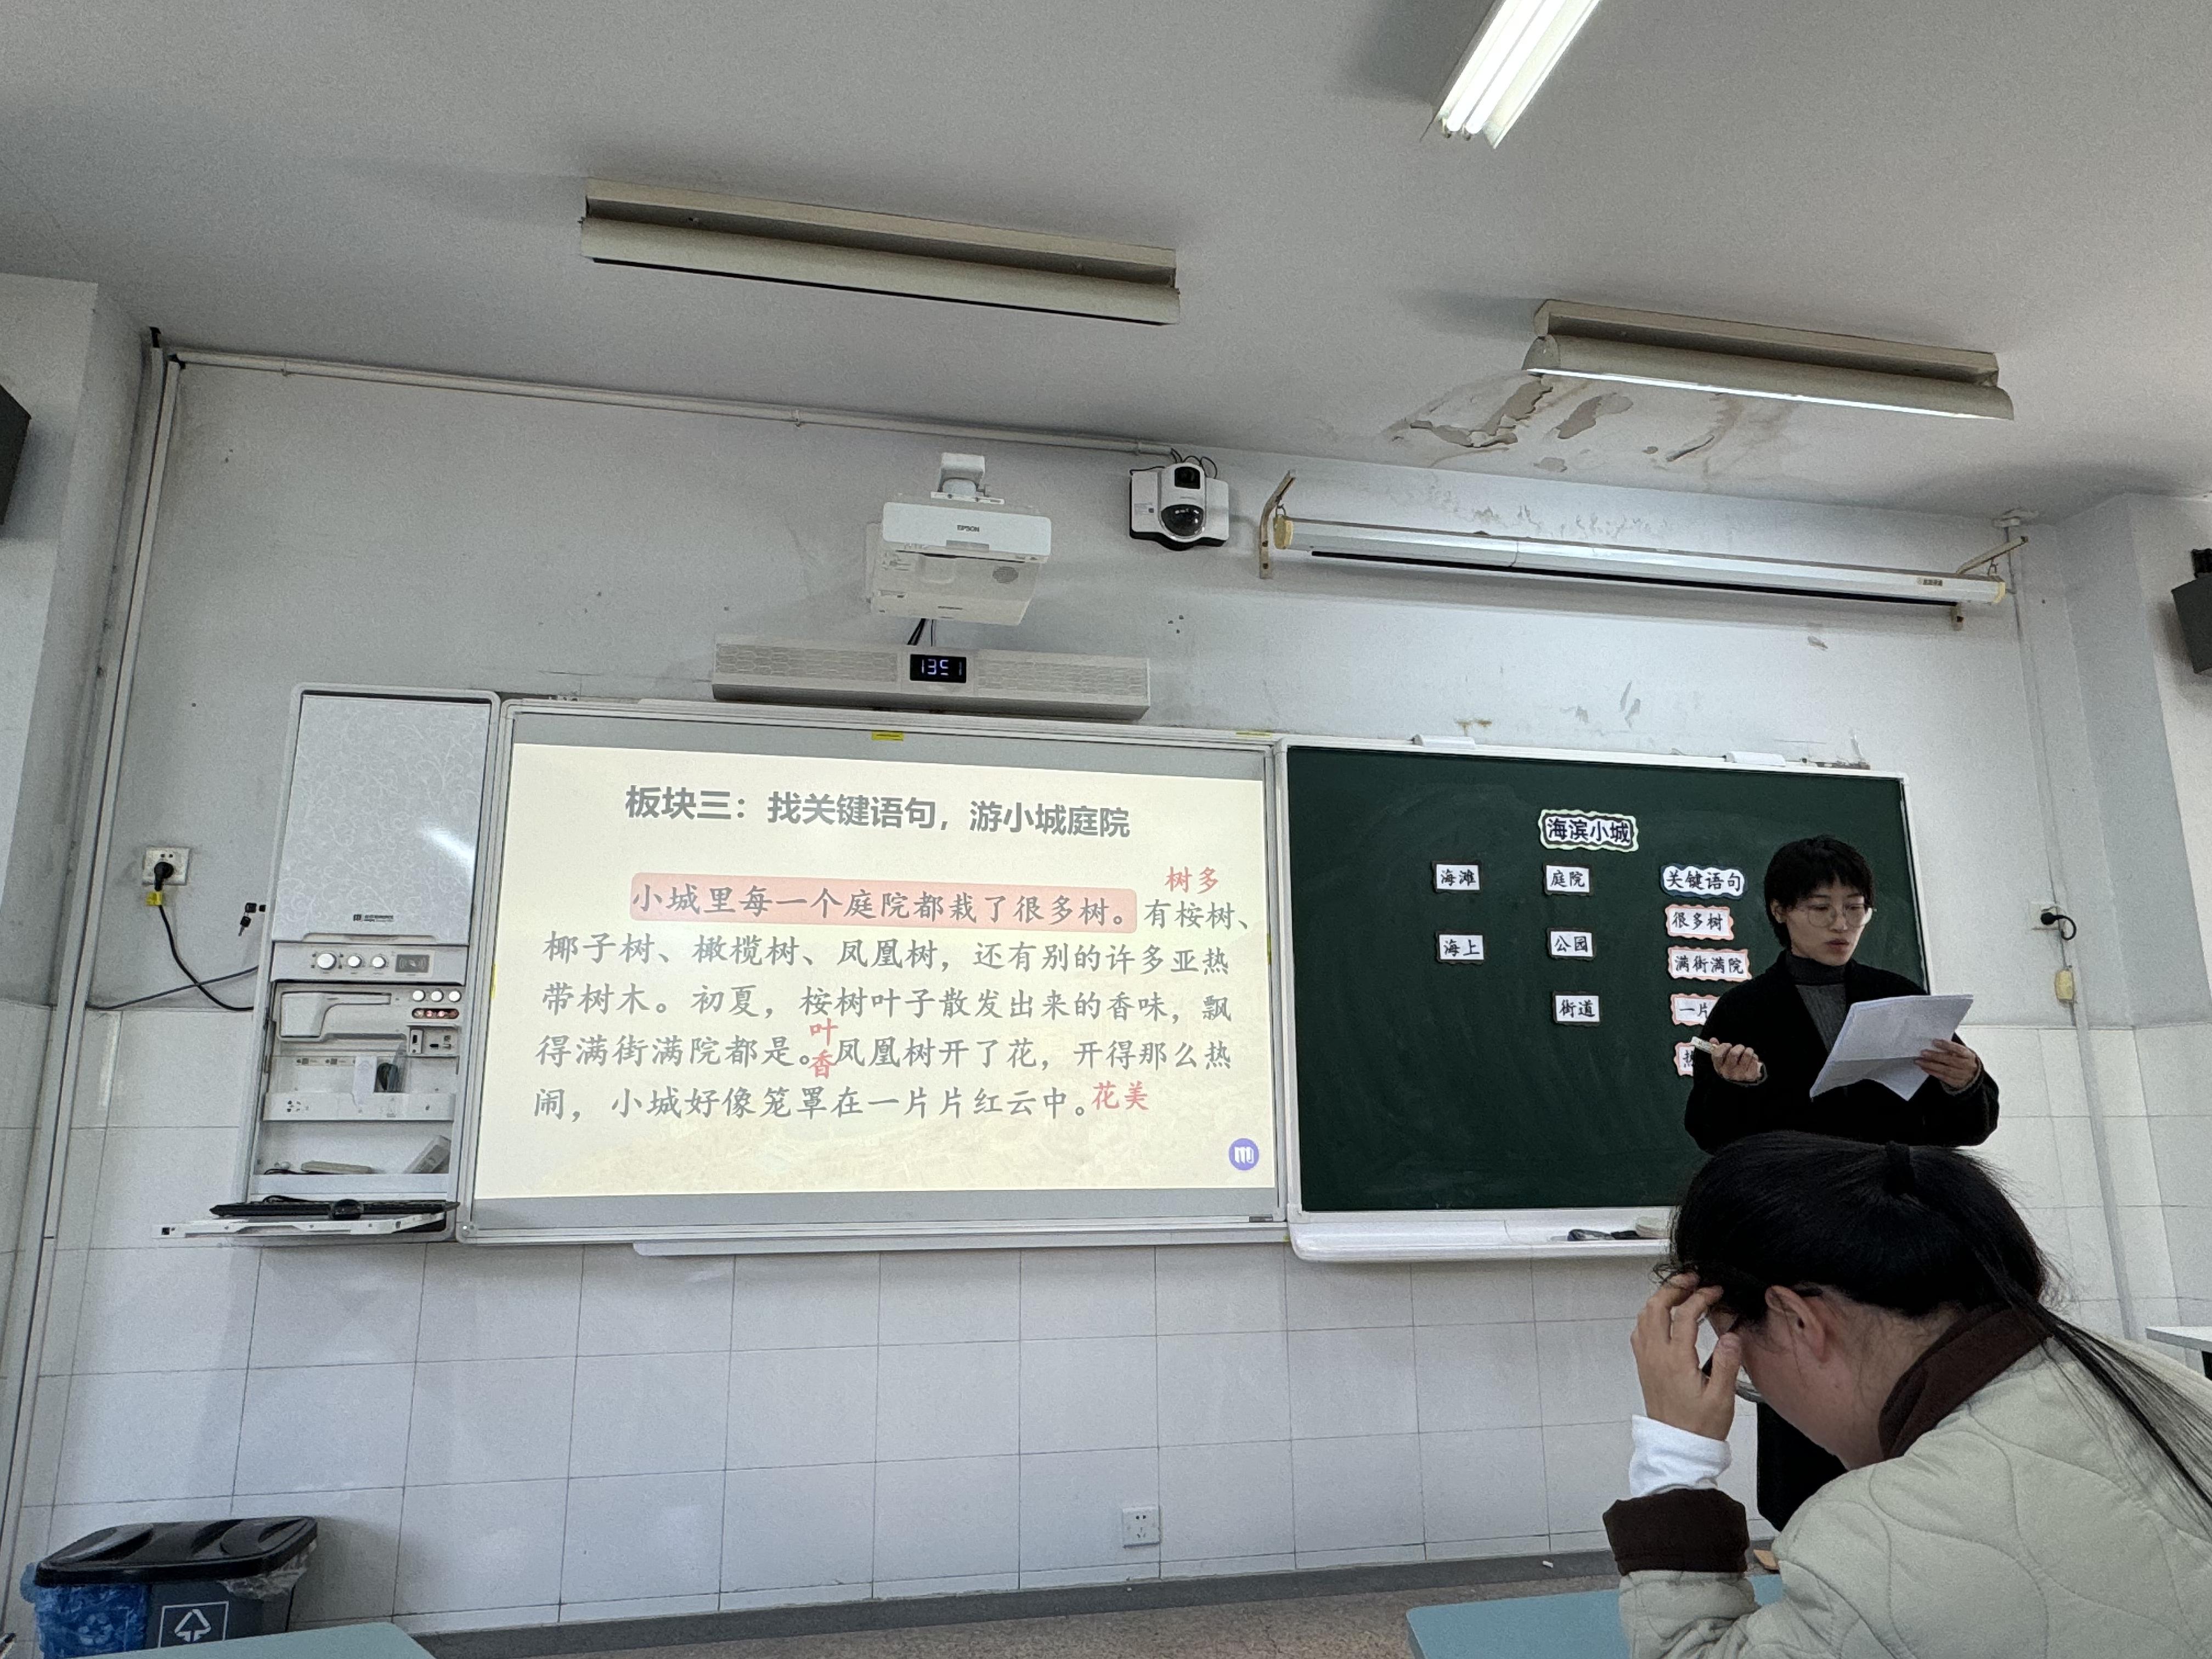 EPSON
板块三：找关键语句，游小城庭院
树多
小城里每一个庭院都栽了很多树。有桉树、
椰子树、橄榄树、凤凰树，还有别的许多亚热
带树木。初夏，桉树叶子散发出来的香味，飘
叶香
得满街满院都是。凤凰树开了花，开得那么热
闹，小城好像笼罩在一片片红云中。花美
海滨小城
海滩
庭院
关键语句
很多树
海上
公园
满街满院
街道
一片
热